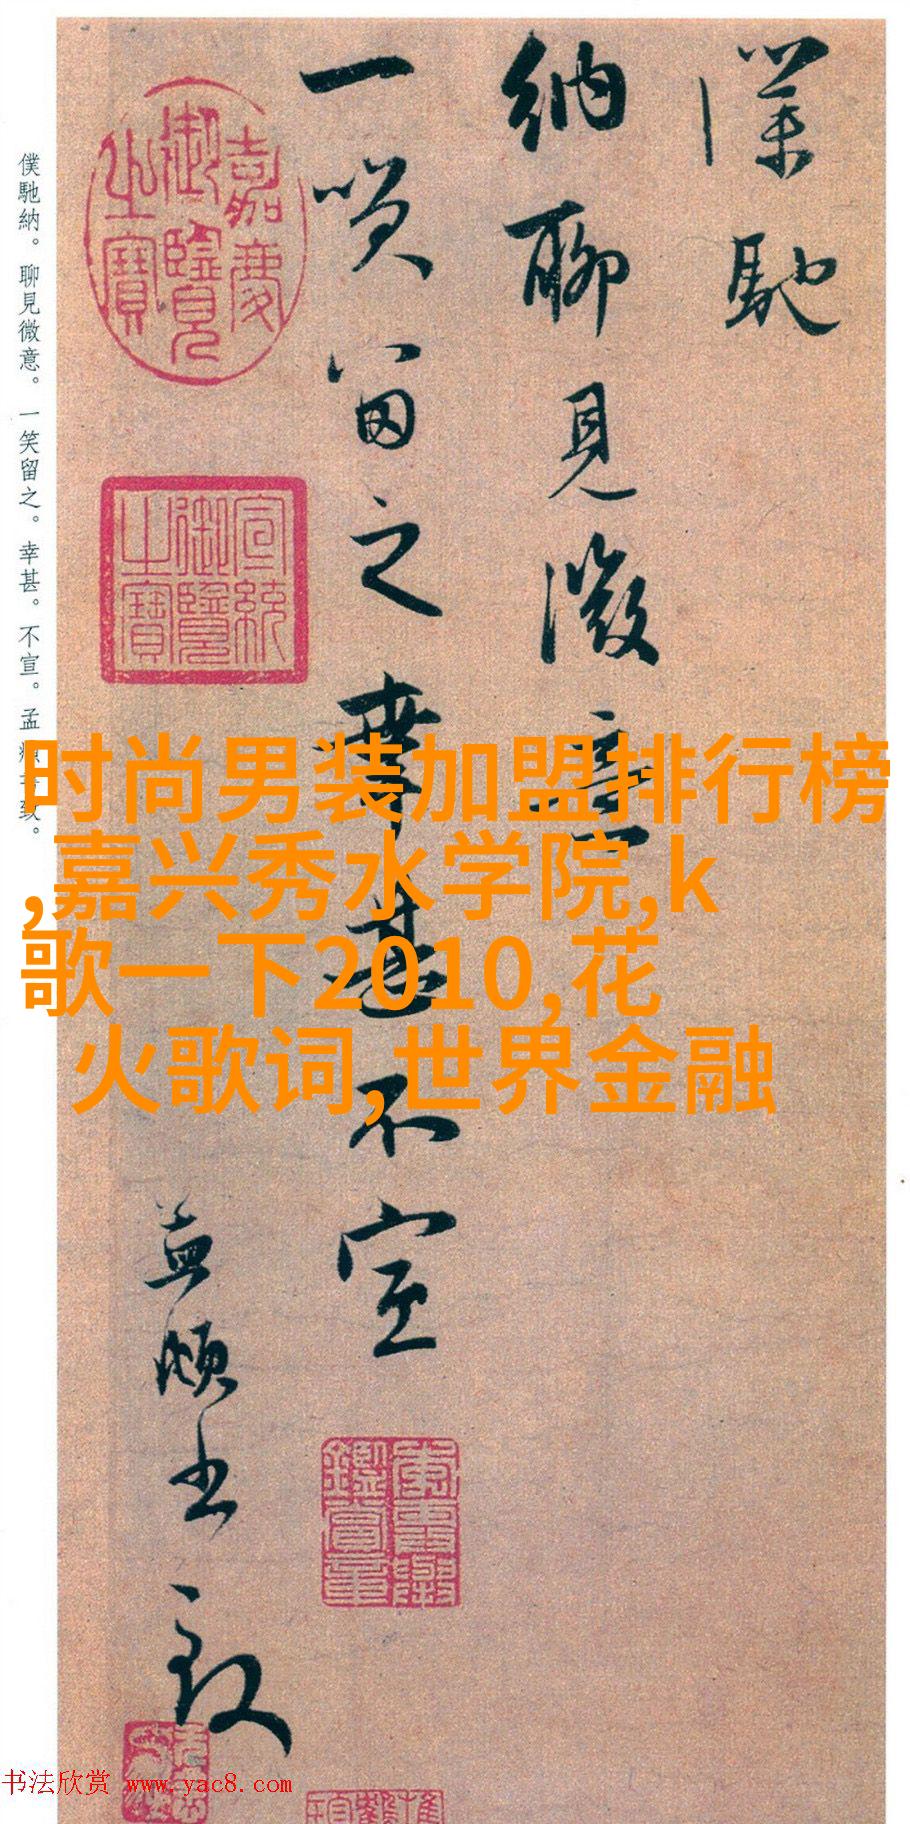 僕馳
納聊見微意
一笑留之幸甚不宣
孟頫書致
嘉慶御覽之寶
宣統御覽之寶
僕馳納。聊見微意。一笑留之。幸甚。不宣。孟頫書致。
时尚男装加盟排行榜
,嘉兴秀水学院,k
歌一下2010,花
火歌词,世界金融
书法欣赏 www.yac8.com